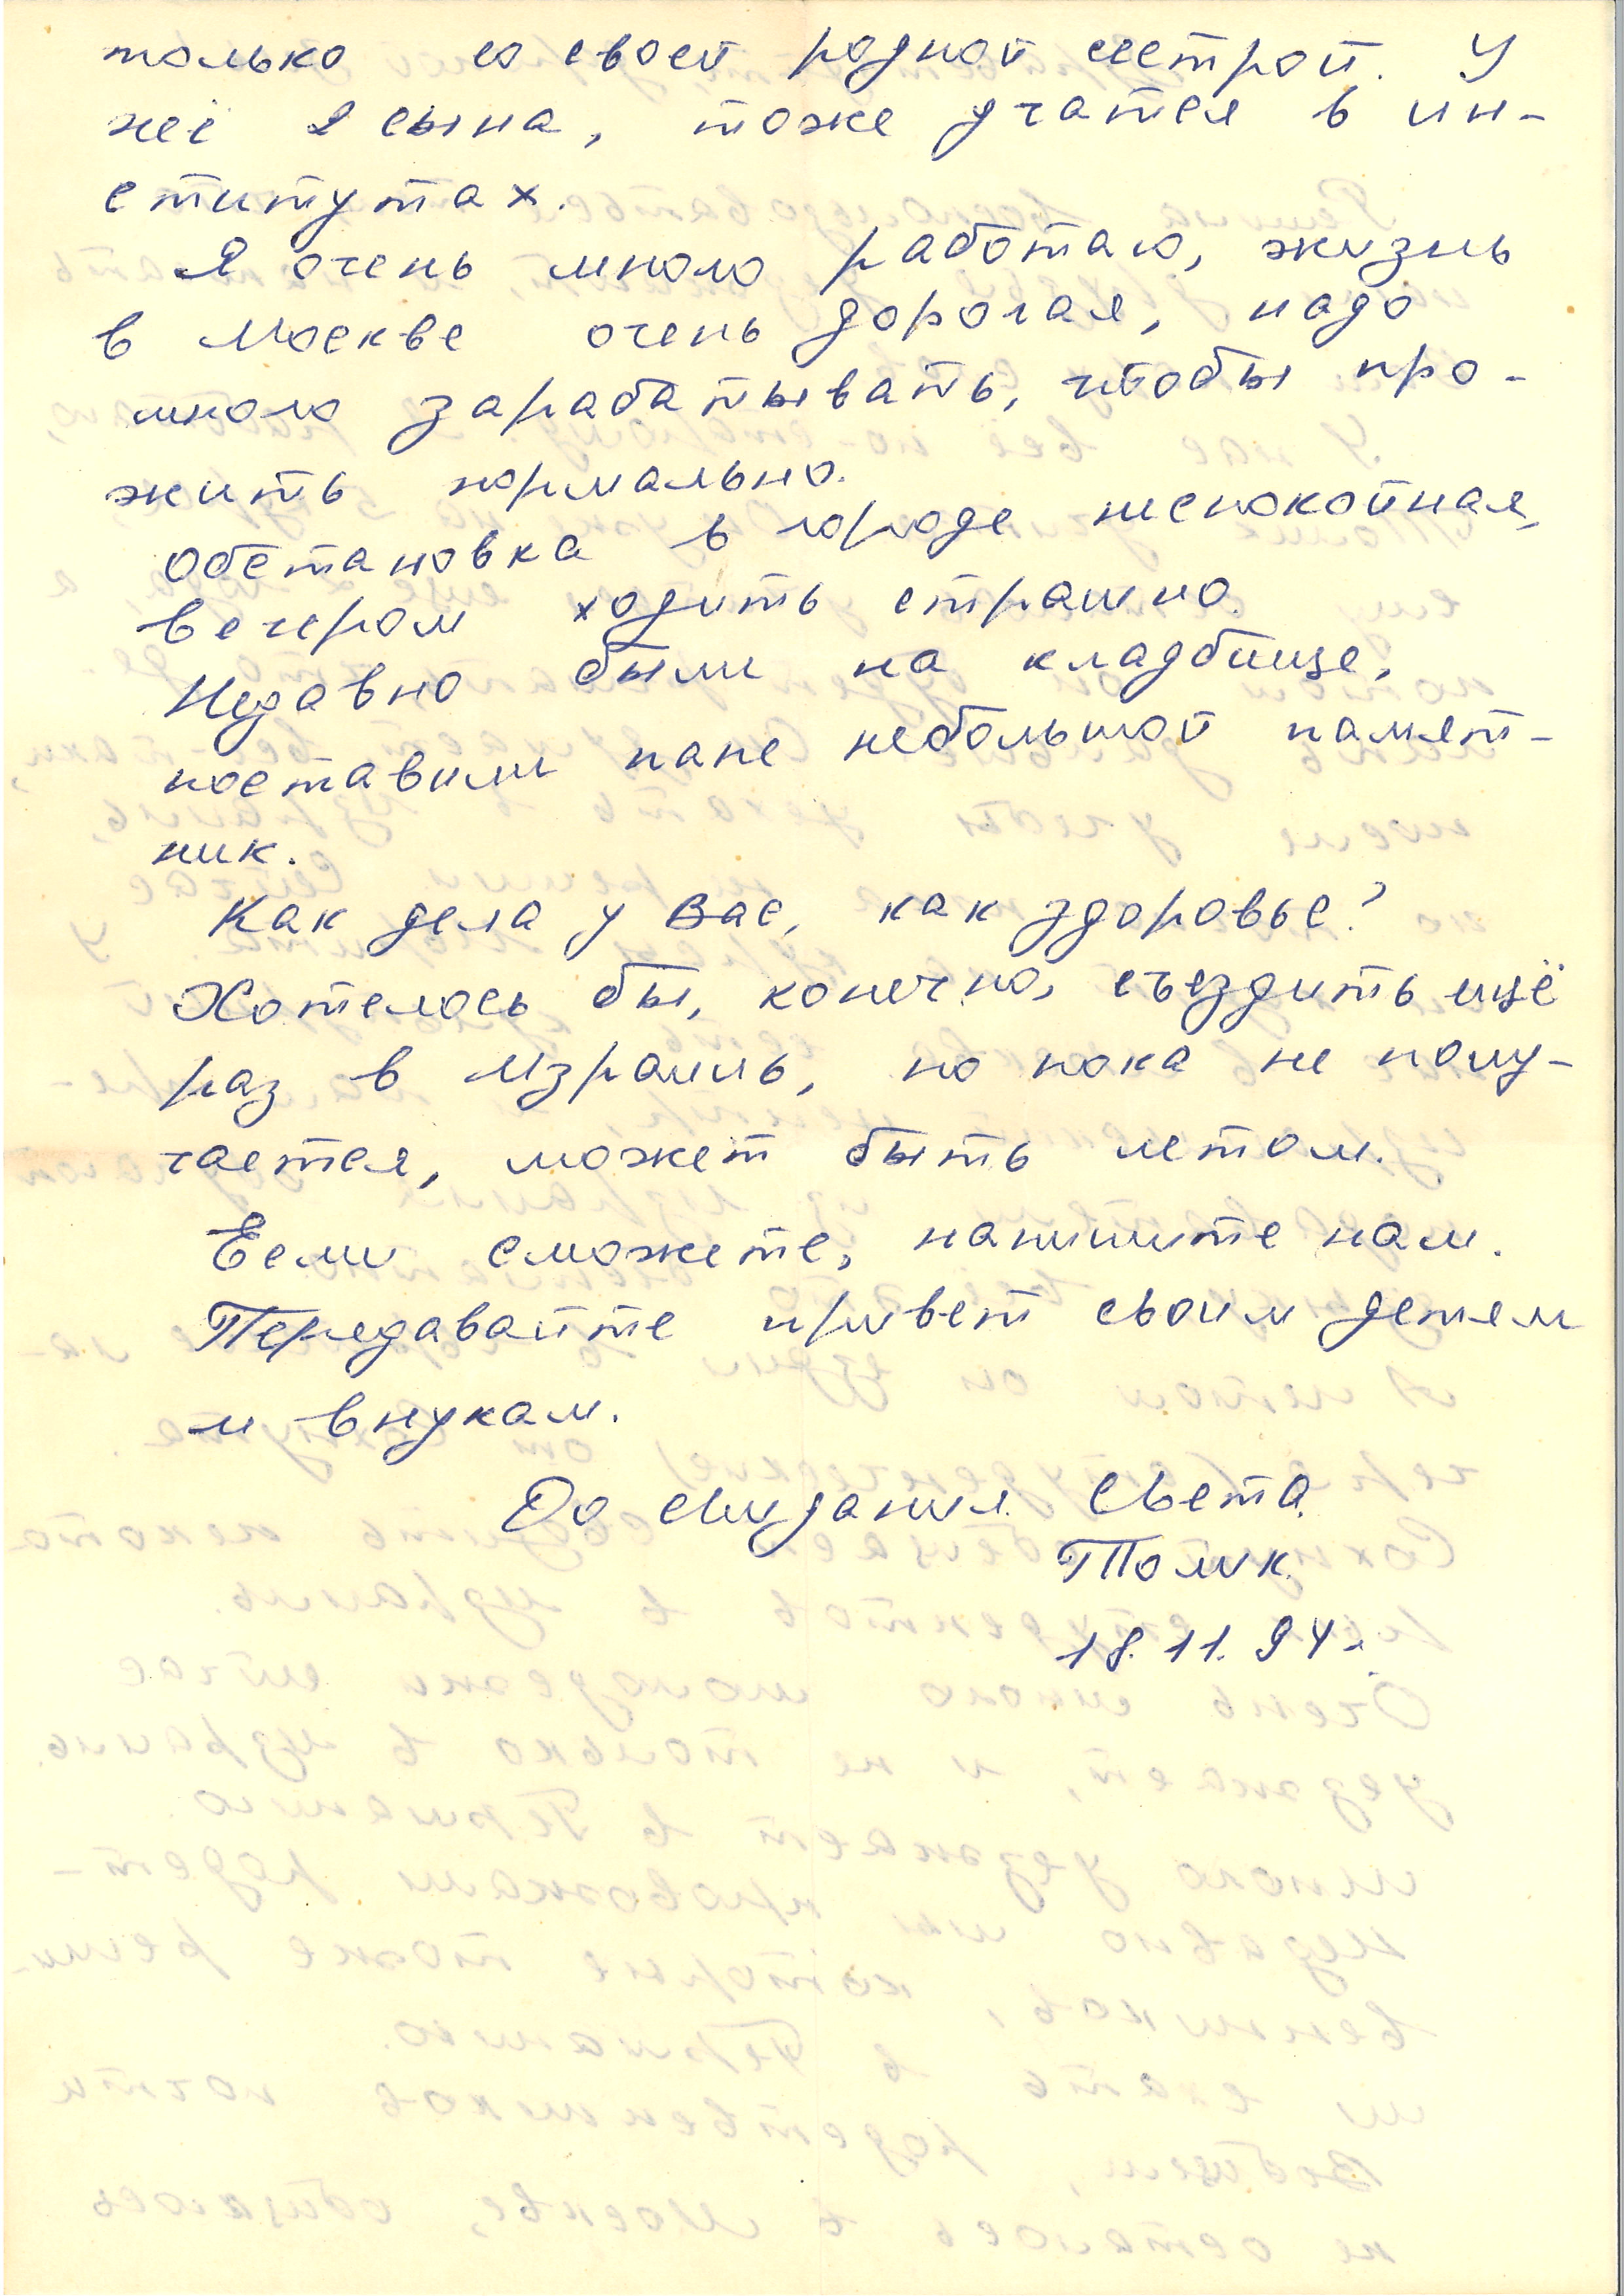 только со своей родной сестрой. У
неё 2 сына, тоже учатся в ин-
ститутах.
Я очень много работаю, жизнь
в Москве очень дорогая, надо
много зарабатывать, чтобы про-
жить нормально.
Обстановка в городе неспокойная,
вечером ходить страшно.
Недавно были на кладбище,
поставили папе небольшой памят-
ник.
Как дела у Вас, как здоровье?
Хотелось бы, конечно, съездить ещё
раз в Израиль, но пока не полу-
чается, может быть летом.
Если сможете, напишите нам.
Передавайте привет своим детям
и внукам.
До свидания. Света.
Толик.
18.11.94г.